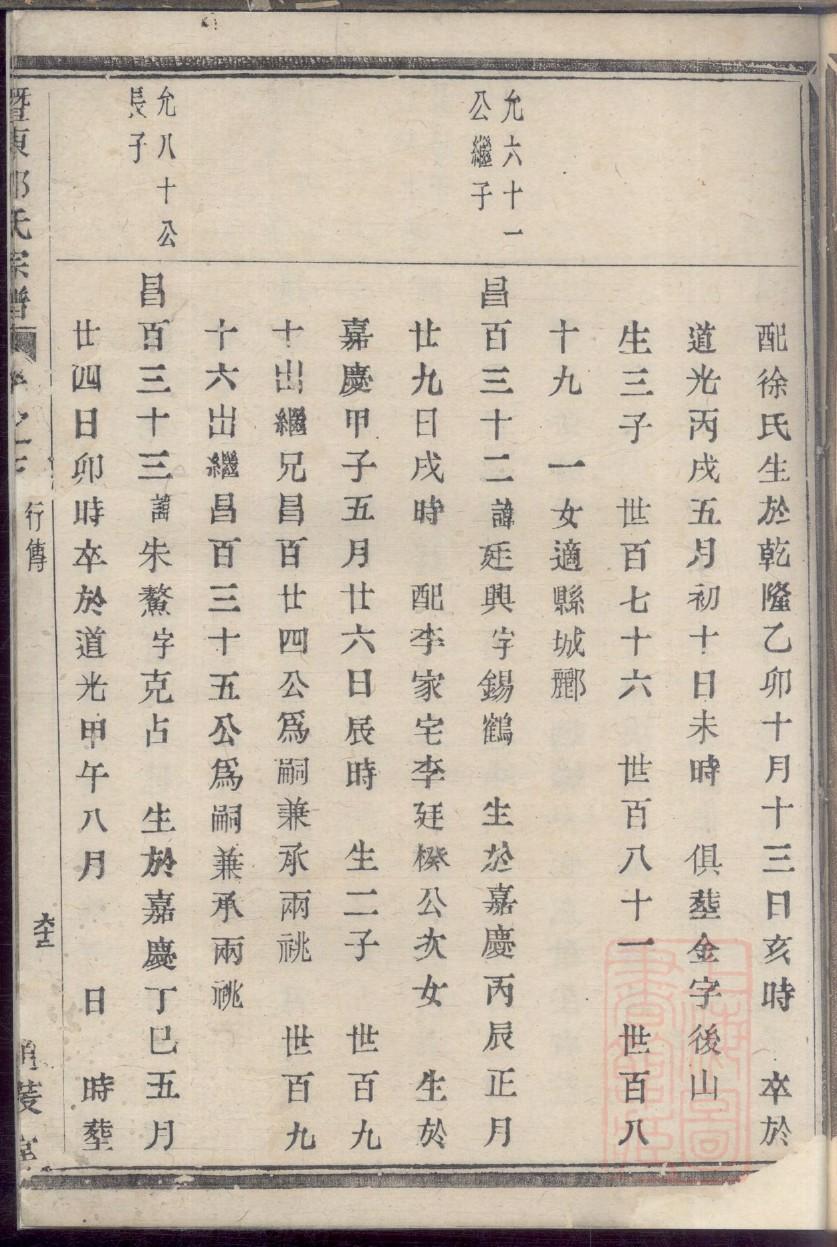 配徐氏生於乾隆乙卯十月十三日亥時　卒於
道光丙戌五月初十日未時　俱塟金字後山
生三子　世百七十六　世百八十一　世百八
十九　一女適縣城酈
允六十一
公繼子
昌百三十二諱廷興字錫鶴　生於嘉慶丙辰正月
廿九日戌時　配李家宅李廷楑公次女　生於
嘉慶甲子五月廿六日辰時　生二子　世百九
十出繼兄昌百廿四公爲嗣兼承兩祧　世百九
十六出繼昌百三十五公爲嗣兼承兩祧
允八十公
長子
昌百三十三諱朱鰲字克占　生於嘉慶丁巳五月
廿四日卯時卒於道光甲午八月　日　時塟
暨東　氏宗譜
行傳
六十三